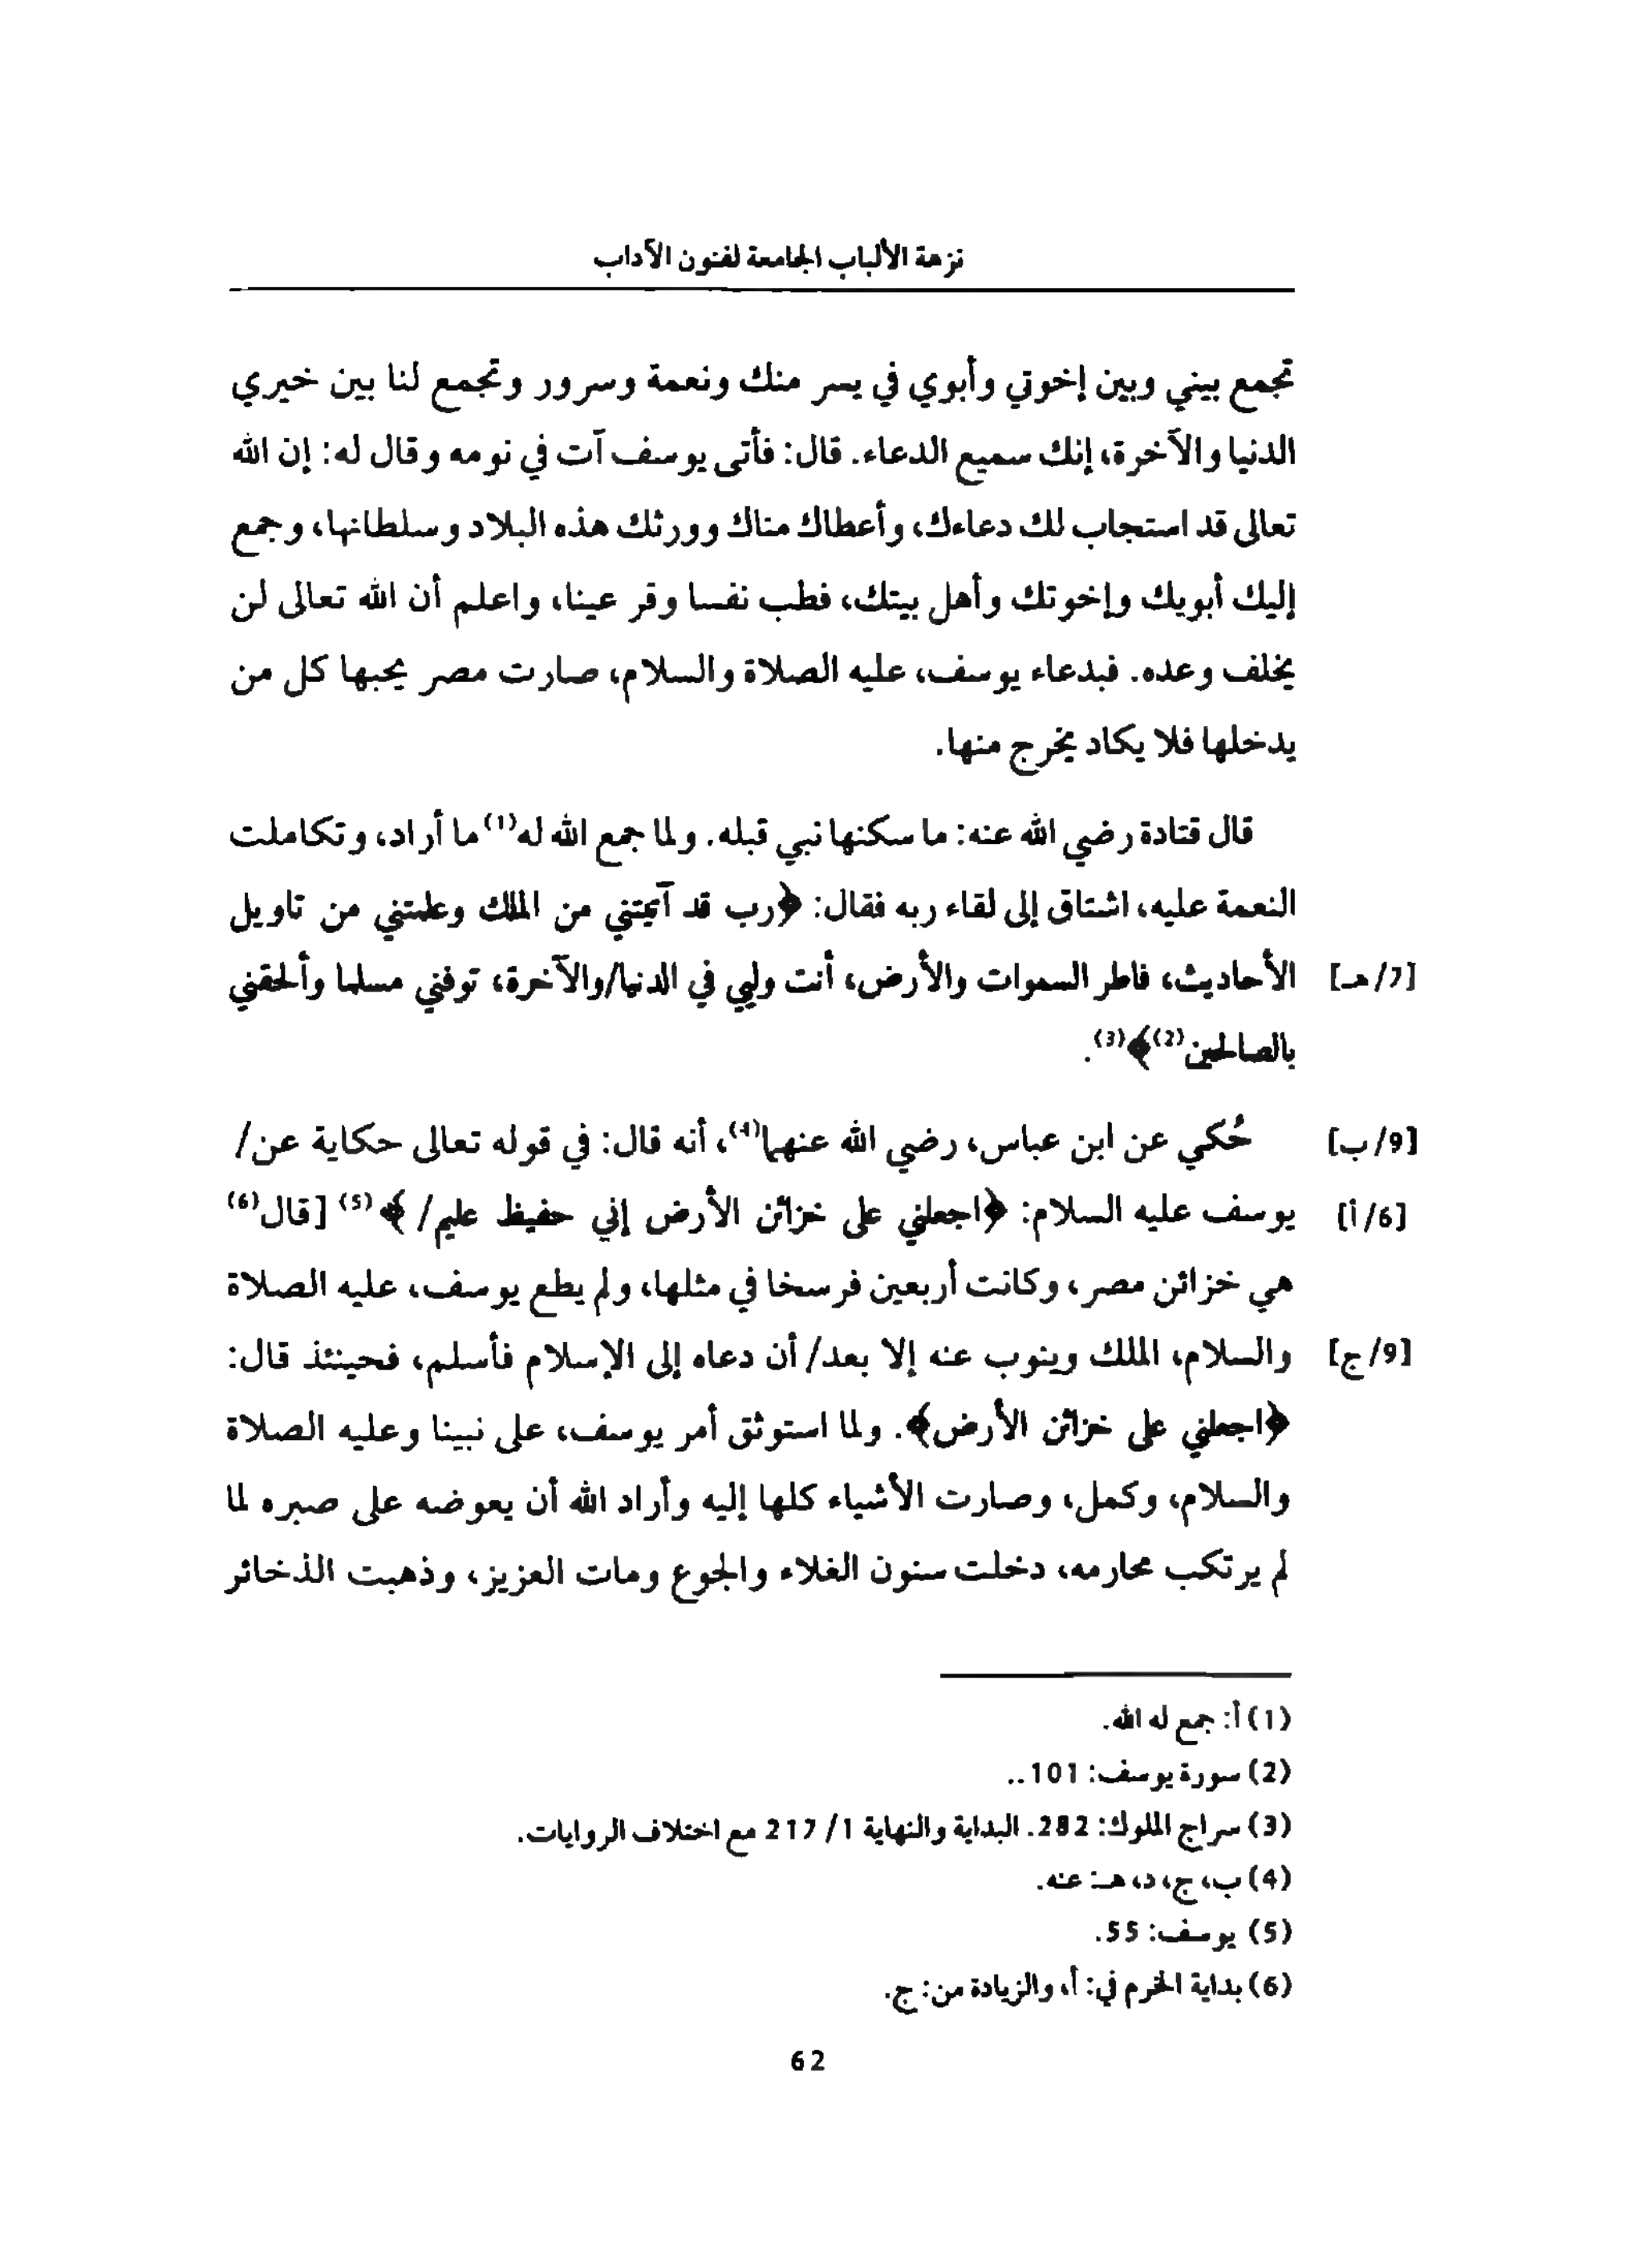 نزهة الألباب الجامعة لفنون الآداب
تجمع بيني وبين إخوتي وأبوي في يسر منك ونعمة وسرور وتجمع لنا بين خيري
الدنيا والآخرة، إنك سميع الدعاء. قال: فأتى يوسف آت في نومه وقال له: إن الله
تعالى قد استجاب لك دعاءك، وأعطاك مناك وورثك هذه البلاد وسلطانها، وجمع
إليك أبويك وإخوتك وأهل بيتك، فطب نفسا وقر عينا، واعلم أن الله تعالى لن
يخلف وعده. فبدعاء يوسف، عليه الصلاة والسلام، صارت مصر يحبها كل من
يدخلها فلا يكاد يخرج منها.
قال قتادة رضي الله عنه: ما سكنها نبي قبله. ولما جمع الله له(1) ما أراد، وتكاملت
النعمة عليه، اشتاق إلى لقاء ربه فقال: ﴿رب قد آتيتني من الملك وعلمتني من تاويل
[7/هـ] الأحاديث، فاطر السموات والأرض، أنت وليي في الدنيا/والآخرة، توفني مسلما وألحقني
بالصالحين(2)﴾(3).
[9/ب] حُكي عن ابن عباس، رضي الله عنهما(4)، أنه قال: في قوله تعالى حكاية عن/
[6/أ] يوسف عليه السلام: ﴿اجعلني على خزائن الأرض إني حفيظ عليم/ ﴾(5) [قال(6)
هي خزائن مصر، وكانت أربعين فرسخا في مثلها، ولم يطع يوسف، عليه الصلاة
[9/ج] والسلام، الملك وينوب عنه إلا بعد/ أن دعاه إلى الإسلام فأسلم، فحينئذ قال:
﴿اجعلني على خزائن الأرض﴾. ولما استوثق أمر يوسف، على نبينا وعليه الصلاة
والسلام، وكمل، وصارت الأشياء كلها إليه وأراد الله أن يعوضه على صبره لما
لم يرتكب محارمه، دخلت سنون الغلاء والجوع ومات العزيز، وذهبت الذخائر
(1) أ: جمع له الله.
(2) سورة يوسف: 101..
(3) سراج الملوك: 282. البداية والنهاية 1/ 217 مع اختلاف الروايات.
(4) ب، ج، د، هـ: عنه.
(5) يوسف: 55.
(6) بداية الخرم في: أ، والزيادة من: ج.
62